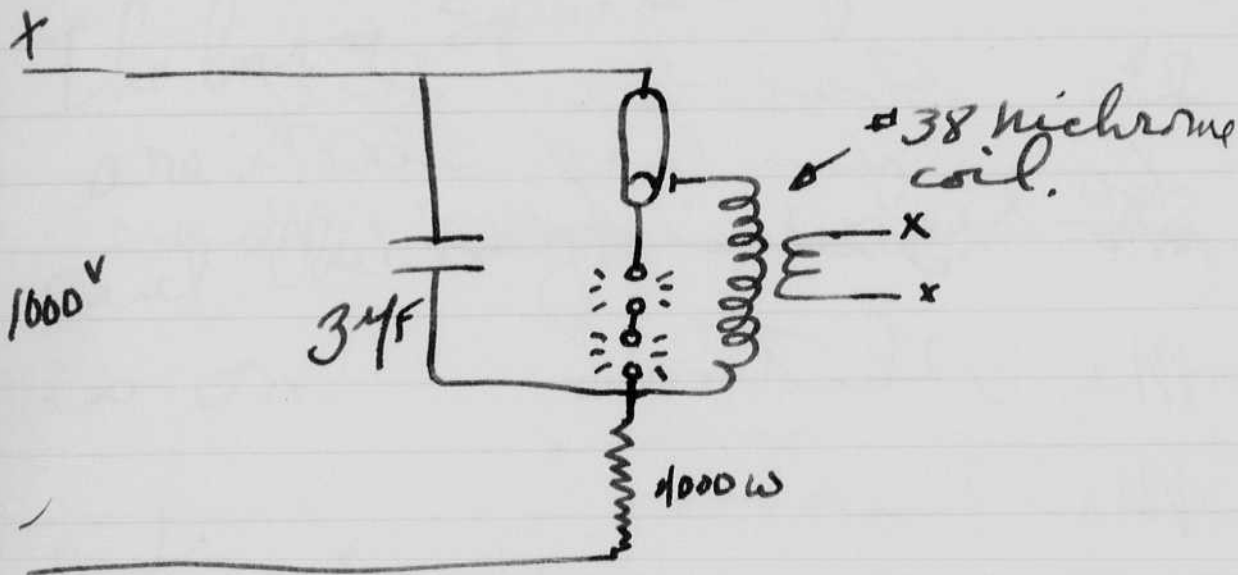 +
#38 nichrome
coil.
x
x
1000 V
3 μF
1000 ω
-